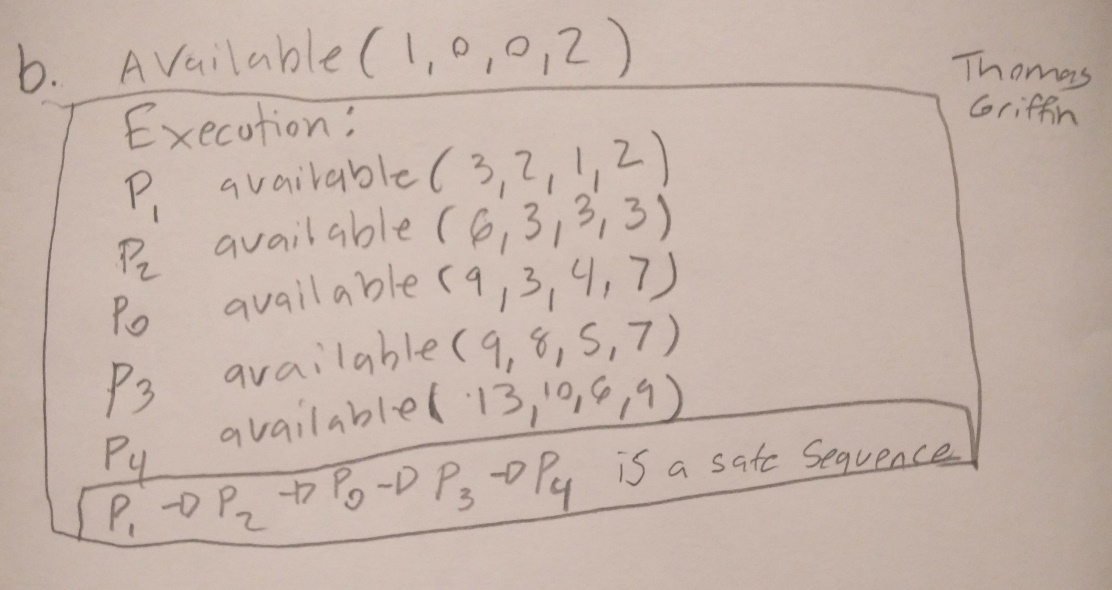 b. Available (1,0,0,2)
Thomas
Griffin
Execution:
P1 available (3,2,1,2)
P2 available (6,3,3,3)
P0 available (9,3,4,7)
P3 available (9,8,5,7)
P4 available (13,10,6,9)
P1 → P2 → P0 → P3 → P4 is a safe Sequence